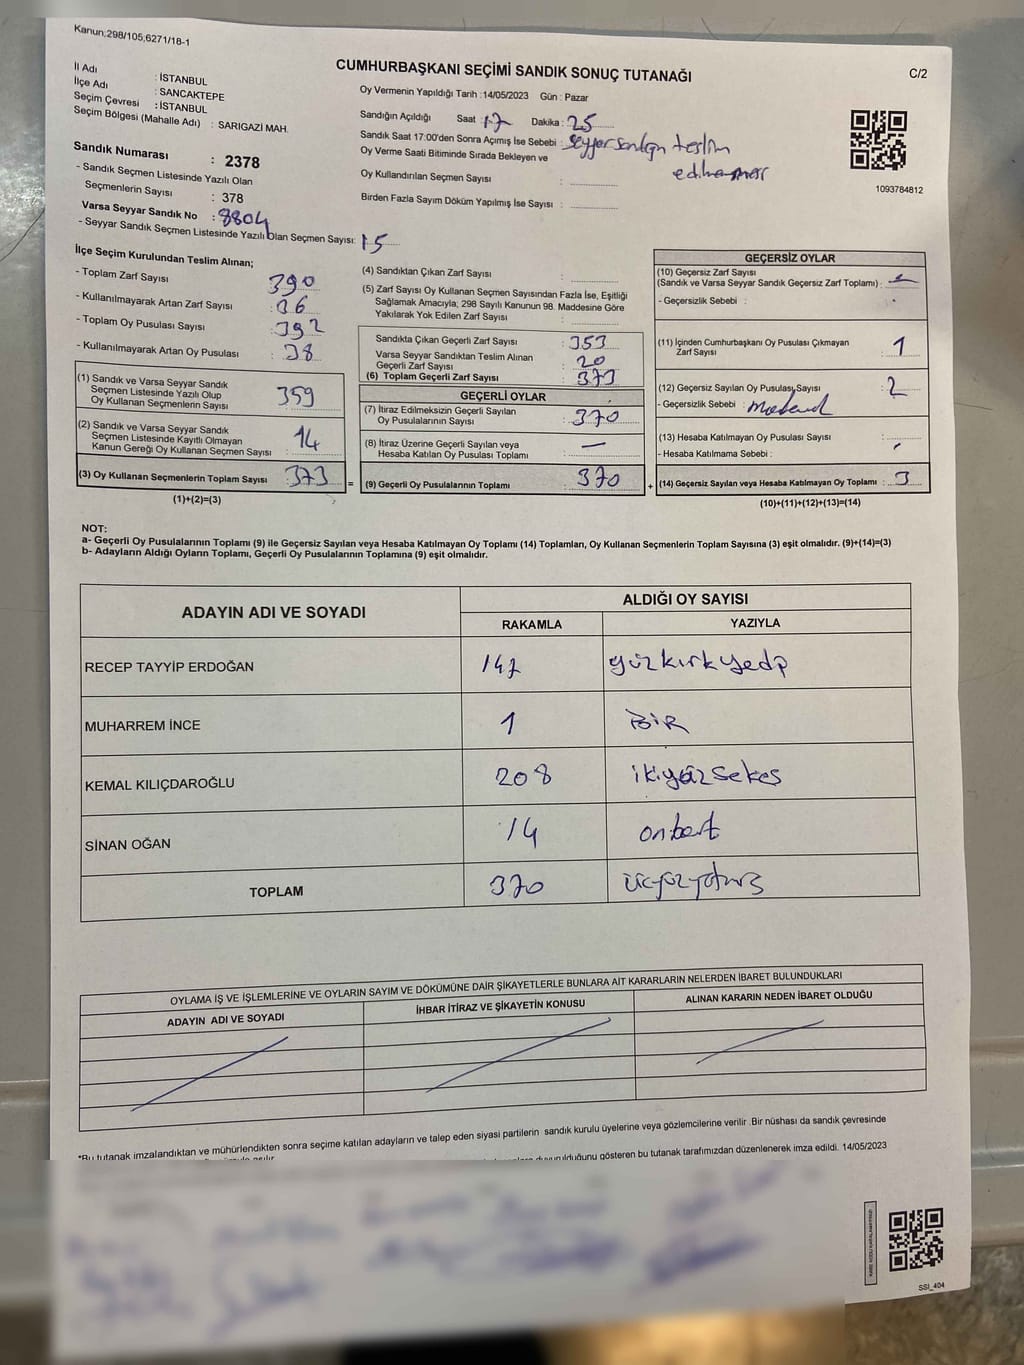 Kanun;298/105,6271/18-1
CUMHURBAŞKANI SEÇİMİ SANDIK SONUÇ TUTANAĞI
C/2
İl Adı : İSTANBUL
İlçe Adı : SANCAKTEPE
Seçim Çevresi : İSTANBUL
Seçim Bölgesi (Mahalle Adı) : SARIGAZİ MAH.
Sandık Numarası : 2378
- Sandık Seçmen Listesinde Yazılı Olan
Seçmenlerin Sayısı : 378
Varsa Seyyar Sandık No : 8804
- Seyyar Sandık Seçmen Listesinde Yazılı Olan Seçmen Sayısı: 15
Oy Vermenin Yapıldığı Tarih :14/05/2023 Gün : Pazar
Sandığın Açıldığı Saat : 17 Dakika : 25
Sandık Saat 17:00'den Sonra Açımış İse Sebebi : seyyar sandığın teslim
Oy Verme Saati Bitiminde Sırada Bekleyen ve
Oy Kullandırılan Seçmen Sayısı :
Birden Fazla Sayım Döküm Yapılmış İse Sayısı :
1093784812
İlçe Seçim Kurulundan Teslim Alınan;
- Toplam Zarf Sayısı 390
- Kullanılmayarak Artan Zarf Sayısı : 36
- Toplam Oy Pusulası Sayısı : 392
- Kullanılmayarak Artan Oy Pusulası : 38
(1) Sandık ve Varsa Seyyar Sandık
Seçmen Listesinde Yazılı Olup
Oy Kullanan Seçmenlerin Sayısı : 359
(2) Sandık ve Varsa Seyyar Sandık
Seçmen Listesinde Kayıtlı Olmayan
Kanun Gereği Oy Kullanan Seçmen Sayısı : 14
(3) Oy Kullanan Seçmenlerin Toplam Sayısı : 373 =
(1)+(2)=(3)
(4) Sandıktan Çıkan Zarf Sayısı :
(5) Zarf Sayısı Oy Kullanan Seçmen Sayısından Fazla İse, Eşitliği
Sağlamak Amacıyla; 298 Sayılı Kanunun 98. Maddesine Göre
Yakılarak Yok Edilen Zarf Sayısı :
Sandıkta Çıkan Geçerli Zarf Sayısı : 353
Varsa Seyyar Sandıktan Teslim Alınan
Geçerli Zarf Sayısı : 20
(6) Toplam Geçerli Zarf Sayısı : 373
GEÇERLİ OYLAR
(7) İtiraz Edilmeksizin Geçerli Sayılan
Oy Pusulalarının Sayısı : 370
(8) İtiraz Üzerine Geçerli Sayılan veya
Hesaba Katılan Oy Pusulası Toplamı : —
(9) Geçerli Oy Pusulalarının Toplamı : 370 +
GEÇERSİZ OYLAR
(10) Geçersiz Zarf Sayısı
(Sandık ve Varsa Seyyar Sandık Geçersiz Zarf Toplamı) :
- Geçersizlik Sebebi :
(11) İçinden Cumhurbaşkanı Oy Pusulası Çıkmayan
Zarf Sayısı : 1
(12) Geçersiz Sayılan Oy Pusulası Sayısı : 2
- Geçersizlik Sebebi :
(13) Hesaba Katılmayan Oy Pusulası Sayısı :
- Hesaba Katılmama Sebebi :
(14) Geçersiz Sayılan veya Hesaba Katılmayan Oy Toplamı : 3
(10)+(11)+(12)+(13)=(14)
NOT:
a- Geçerli Oy Pusulalarının Toplamı (9) ile Geçersiz Sayılan veya Hesaba Katılmayan Oy Toplamı (14) Toplamları, Oy Kullanan Seçmenlerin Toplam Sayısına (3) eşit olmalıdır. (9)+(14)=(3)
b- Adayların Aldığı Oyların Toplamı, Geçerli Oy Pusulalarının Toplamına (9) eşit olmalıdır.
ADAYIN ADI VE SOYADI ALDIĞI OY SAYISI
RAKAMLA YAZIYLA
RECEP TAYYİP ERDOĞAN 147 yüzkırkyedi
MUHARREM İNCE 1 BİR
KEMAL KILIÇDAROĞLU 208 ikiyüzsekes
SİNAN OĞAN 14 ondört
TOPLAM 370 üçyüzyetmiş
OYLAMA İŞ VE İŞLEMLERİNE VE OYLARIN SAYIM VE DÖKÜMÜNE DAİR ŞİKAYETLERLE BUNLARA AİT KARARLARIN NELERDEN İBARET BULUNDUKLARI
ADAYIN ADI VE SOYADI İHBAR İTİRAZ VE ŞİKAYETİN KONUSU ALINAN KARARIN NEDEN İBARET OLDUĞU
*Bu tutanak imzalandıktan ve mühürlendikten sonra seçime katılan adayların ve talep eden siyasi partilerin sandık kurulu üyelerine veya gözlemcilerine verilir .Bir nüshası da sandık çevresinde
duyurulduğunu gösteren bu tutanak tarafımızdan düzenlenerek imza edildi. 14/05/2023
SSİ_404